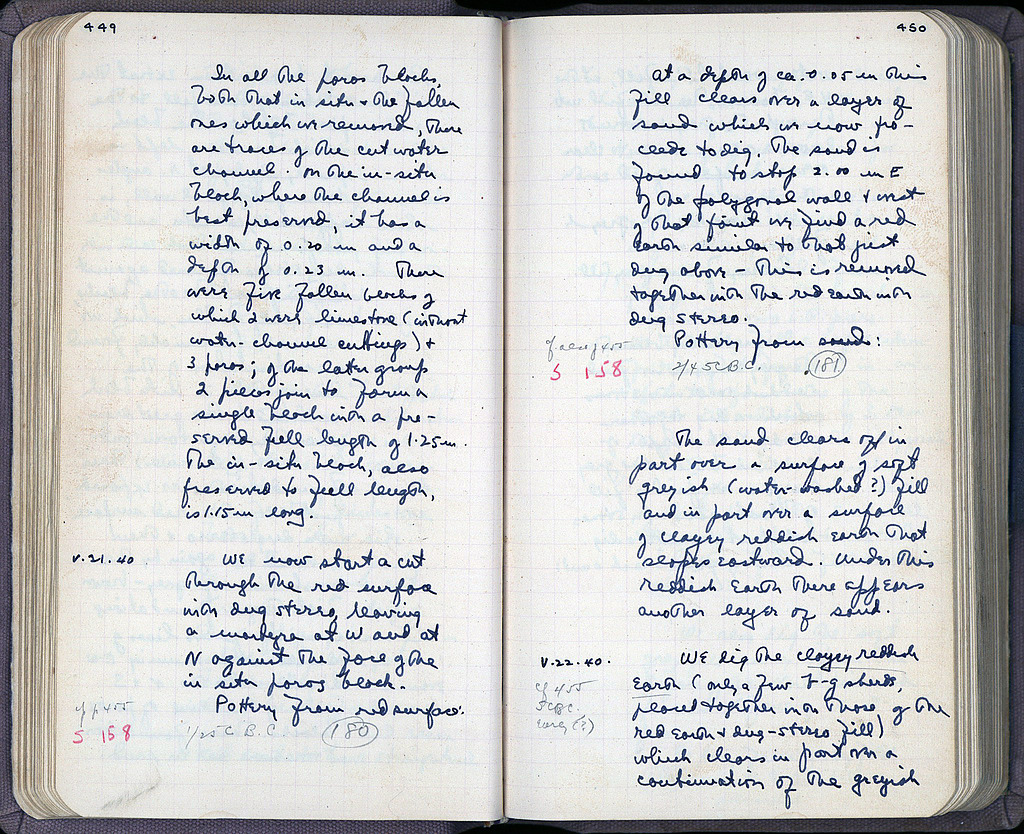 449
In all the poros blocks,
both that in situ + the fallen
ones which we removed, there
are traces of the cut water
channel. On the in-situ
block, where the channel is
best preserved, it has a
width of 0.20 m and a
depth of 0.23 m. There
were five fallen blocks of
which 2 were limestone (without
water-channel cuttings) +
3 poros; of the latter group
2 pieces join to form a
single block with a pre-
served full length of 1.25 m.
The in-situ block, also
preserved to full length,
is 1.15 m long.
V.21.40 We now start a cut
through the red surface
with dug stereo, leaving
a martyra at W and at
N against the face of the
in situ poros block.
Pottery from red surface:
cf p 455
S 158 B.C. 180
450
At a depth of ca. 0.05 m this
fill clears over a layer of
sand which we now pro-
ceede to dig. The sand is
found to stop 2.00 m E
of the polygonal wall + west
of that point we find a red
earth similar to that just
dug above - This is removed
together with the red earth with
dug stereo.
Pottery from sand:
cf also p 455
S 158 2/4 5C B.C. 181
The sand clears off in
part over a surface of soft
greyish (water-washed?) fill
and in part over a surface
of clayey reddish earth that
slopes eastward. Under this
reddish earth there appears
another layer of sand.
V.22.40. We dig the clayey reddish
earth (only a few b-g sherds,
placed together with those of the
red earth + dug-stereo fill)
which clears in part over a
continuation of the greyish
cf 455
5C BC.
early (?)